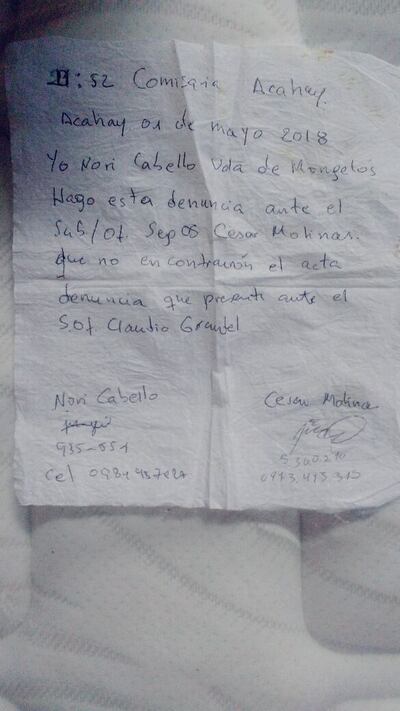 : 52 Comisaria Acahay.
Acahay 01 de mayo 2018
Yo Nori Cabello Vda de Mongelos
Hago esta denuncia ante el
Sub/of. Sep 05 Cesar Molinas.
que no encontrarón el acta
denuncia que presenti ante el
S.Of. Claudio
Nori Cabello
Cesar Molina
935-551
Cel
5360290
0973.495 310